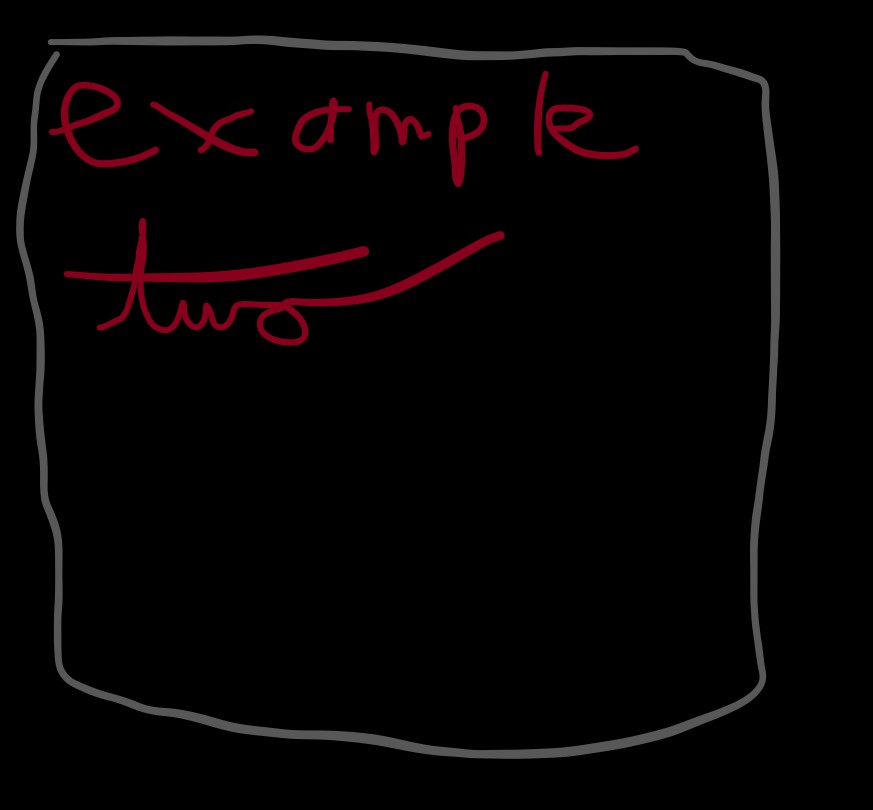 example
two